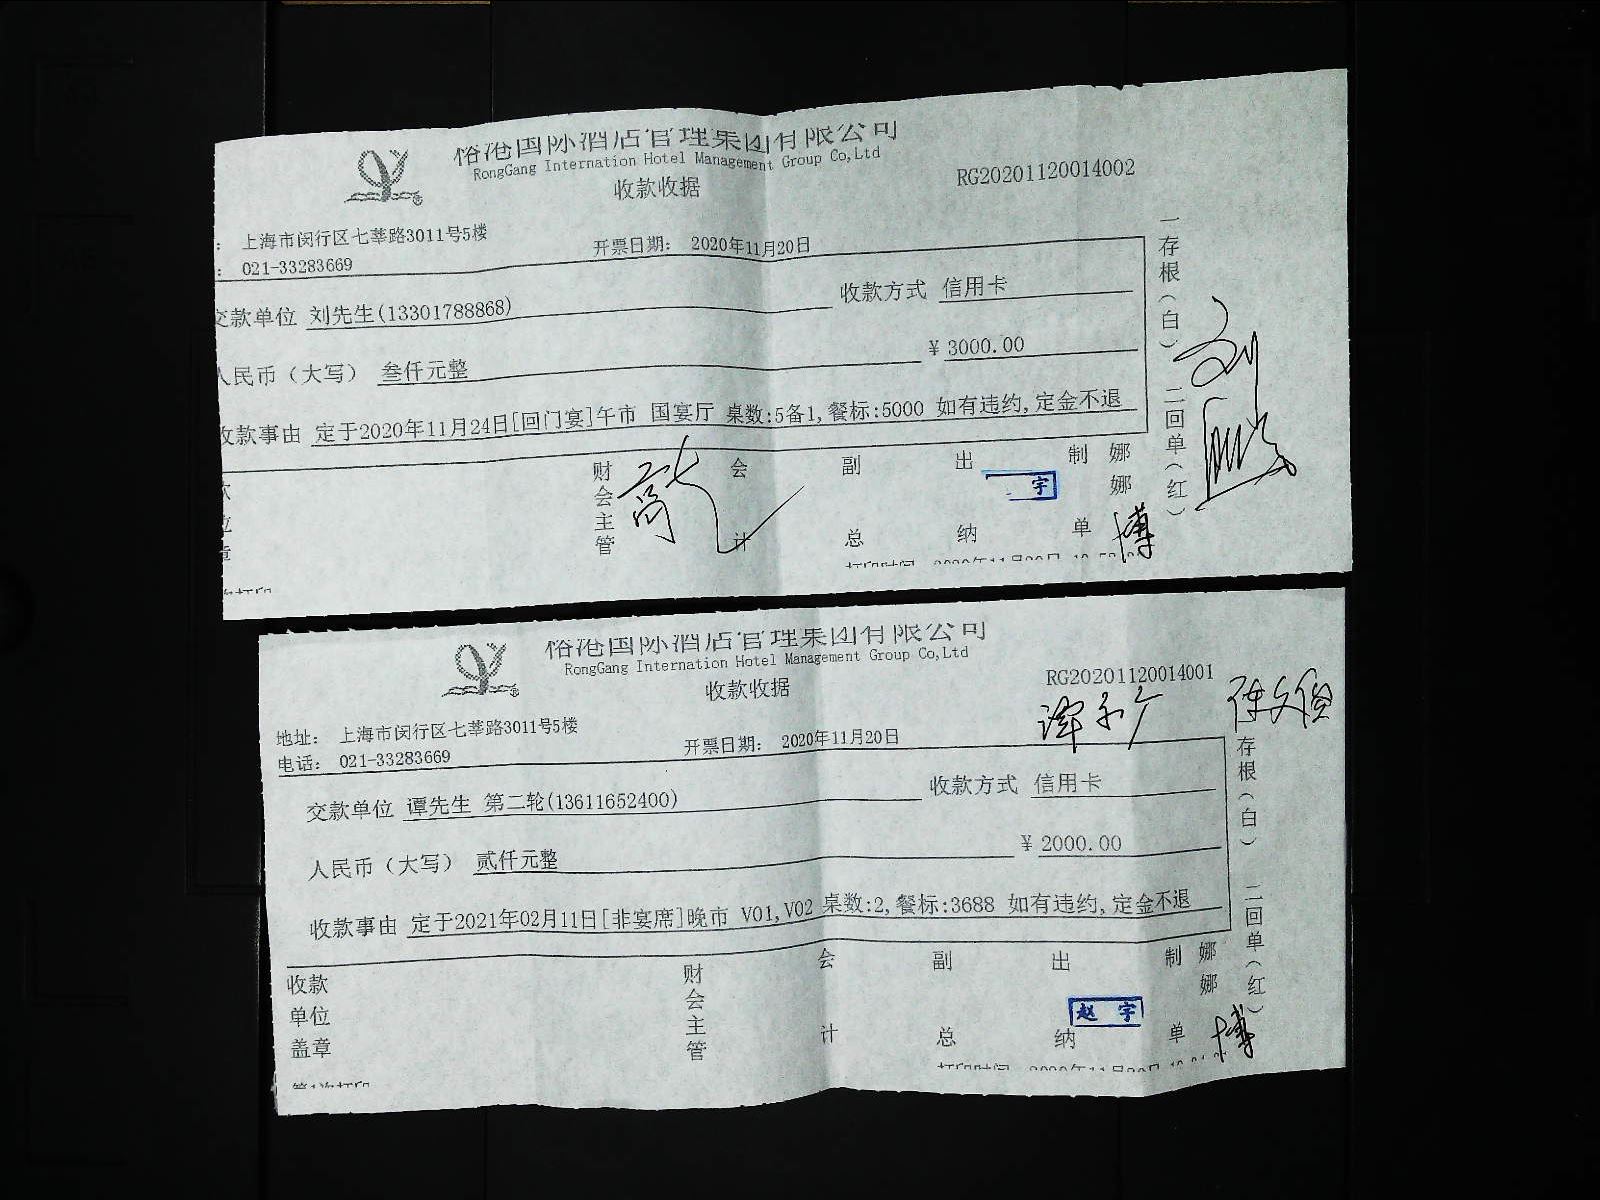 俗港国际酒店管理集团有限公司
RongGang Internation Hotel Management Group Co,Ltd
收款收据
RG20201120014002
： 上海市闵行区七莘路3011号5楼
： 021-33283669
开票日期： 2020年11月20日
交款单位 刘先生(13301788868)
收款方式 信用卡
人民币（大写） 叁仟元整
￥3000.00
收款事由 定于2020年11月24日[回门宴]午市 国宴厅 桌数:5备1,餐标:5000 如有违约,定金不退
财会主管
会计
副总
出纳
宇
制单
娜娜
博
一存根（白） 二回单（红）
打印时间 2020年11月20日
俗港国际酒店管理集团有限公司
RongGang Internation Hotel Management Group Co,Ltd
收款收据
RG20201120014001
地址： 上海市闵行区七莘路3011号5楼
电话： 021-33283669
开票日期： 2020年11月20日
交款单位 谭先生 第二轮(13611652400)
收款方式 信用卡
人民币（大写） 贰仟元整
￥2000.00
收款事由 定于2021年02月11日[非宴席]晚市 V01,V02 桌数:2,餐标:3688 如有违约,定金不退
收款单位盖章
财会主管
会计
副总
出纳
赵宇
制单
娜娜
博
存根（白） 二回单（红）
第1次打印
打印时间 2020年11月20日